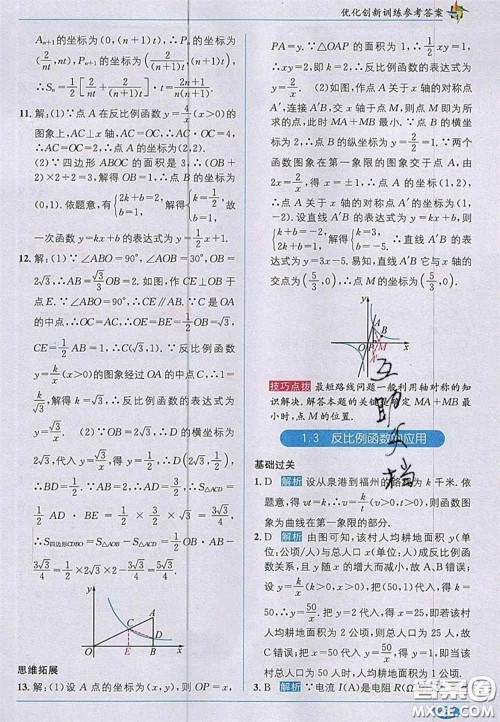 优化创新训练参考答案
P_{n+1}的坐标为(0,(n+1)t).∴A_n的坐标为
(2/nt, nt).A_{n+1}的坐标为(2/(n+1)t, (n+1)t).∴
S_n=1/2[2/nt+2/(n+1)t]·t=(2n+1)/(n(n+1)).
11.解:(1)∵点A在反比例函数y=4/x(x>0)的
图象上,AC⊥x轴,AC=OC,∴AC·OC=4.
∴AC=OC=2.∴点A的坐标为(2,2).
(2)∵四边形ABOC的面积是3,∴(OB+
2)×2÷2=3.解得OB=1.∴点B的坐标为
(0,1).依题意,有{2k+b=2, b=1.解得{k=1/2, b=1.故
一次函数y=kx+b的表达式为y=1/2x+1.
12.解:(1)∵∠ABO=90°,∠AOB=30°,OB=
2√3,∴AB=√3/3OB=2.如图,作CE⊥OB于
点E.∵∠ABO=90°,∴CE∥AB.∵C是OA
的中点,∴OC=AC,∴OE=BE=1/2OB=√3,
CE=1/2AB=1,∴C(√3,1).∵反比例函数
y=k/x(x>0)的图象经过OA的中点C,∴1=
k/√3.∴k=√3.(2)∵OB=2√3,∴D的横坐标为
2√3.代入y=√3/x,得y=1/2,∴D(2√3,1/2),∴BD=
1/2.∵AB=2,∴AD=3/2,∴S△ACD=
1/2AD·BE=1/2×3/2×√3=3√3/4,
∴S四边形CDBO=S△AOB-S△ACD=1/2OB·AB-
3√3/4=1/2×2√3×2-3√3/4=5√3/4.
y
A
C
D
O
E
B
x
思维拓展
13.解:(1)设A点的坐标为(x,y),则OP=x,
PA=y.∵△OAP的面积为1,∴1/2xy=
1,∴xy=2,即k=2.∴反比例函数的表达式为
y=2/x.(2)如图,作点A关于x轴的对称点
A′,连接A′B,交x轴于点M,则点M即为所
求的点,此时MA+MB最小.∵点B的横坐标
为2,∴点B的纵坐标为y=2/2=1.∵两个
函数图象在第一象限的图象交于点A,由
2x=2/x,得x=±1,y=±2.∴点A的坐标为
(1,2).∴点A关于x轴的对称点A′的坐标为
(1,-2).设直线A′B的表达式为y=kx+b.由
{k+b=-2, 2k+b=1,解得{k=3, b=-5.∴直线A′B的表达
式为y=3x-5.易知,直线A′B它与x轴的
交点为(5/3,0).∴点M的坐标为(5/3,0).
y
A
B
O
P
M
x
A′
技巧点拨 最短路线问题一般利用轴对称的知
识解决.解答本题的关键是确定MA+MB最
小时,点M的位置.
1.3 反比例函数的应用
互助文档
基础过关
1.D 解析 设从泉港到福州的路程为k千米.依
题意,得vt=k,∴v=k/t(v>0,t>0),则函数图
象为曲线在第一象限的部分.
2.D 解析 由图可知,该村人均耕地面积y(单
位:公顷/人)与总人口x(单位:人)成反比例函
数关系,且y随x的增大而减小,故A,B错误;
设y=k/x(x>0,k>0),把x=50时,y=1代入,
得k=50,∴y=50/x.把y=2代入y=50/x,得x=
25,C错误;把x=50代入y=50/x,得y=1,即若该村
人均耕地面积为2公顷,则总人口为25人,故
3.B 解析 ∵电流I(A)是电阻R(Ω)
答案圈
MXQE.COM